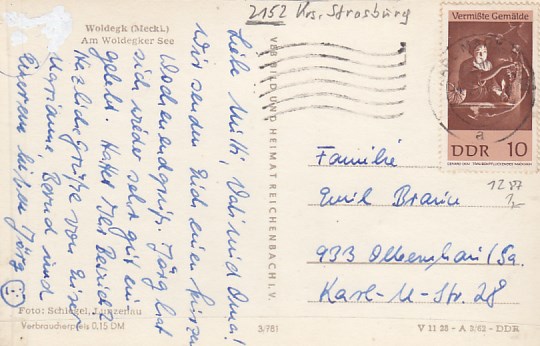 2152 Krs. Strasburg
Woldegk (Meckl.)
Am Woldegker See
Liebe Mutti, Vati und Oma!
Wir senden Euch einen kurzen
Wochenendgruß. Jörg hat
sich wieder sehr gut ein
gelebt.
Herzliche Grüße von Eurer
Marianne Bernd und
Jörg
Foto: Schlegel, Lunzenau
Verbraucherpreis 0,15 DM
VERLAG BILD UND HEIMAT REICHENBACH I. V.
3/781
Vermißte Gemälde
DDR 10
a
Familie
Emil Braun
933 Olbernhau/Sa.
Karl-M-Str. 28
1287
V 11 28 - A 2/62 - DDR